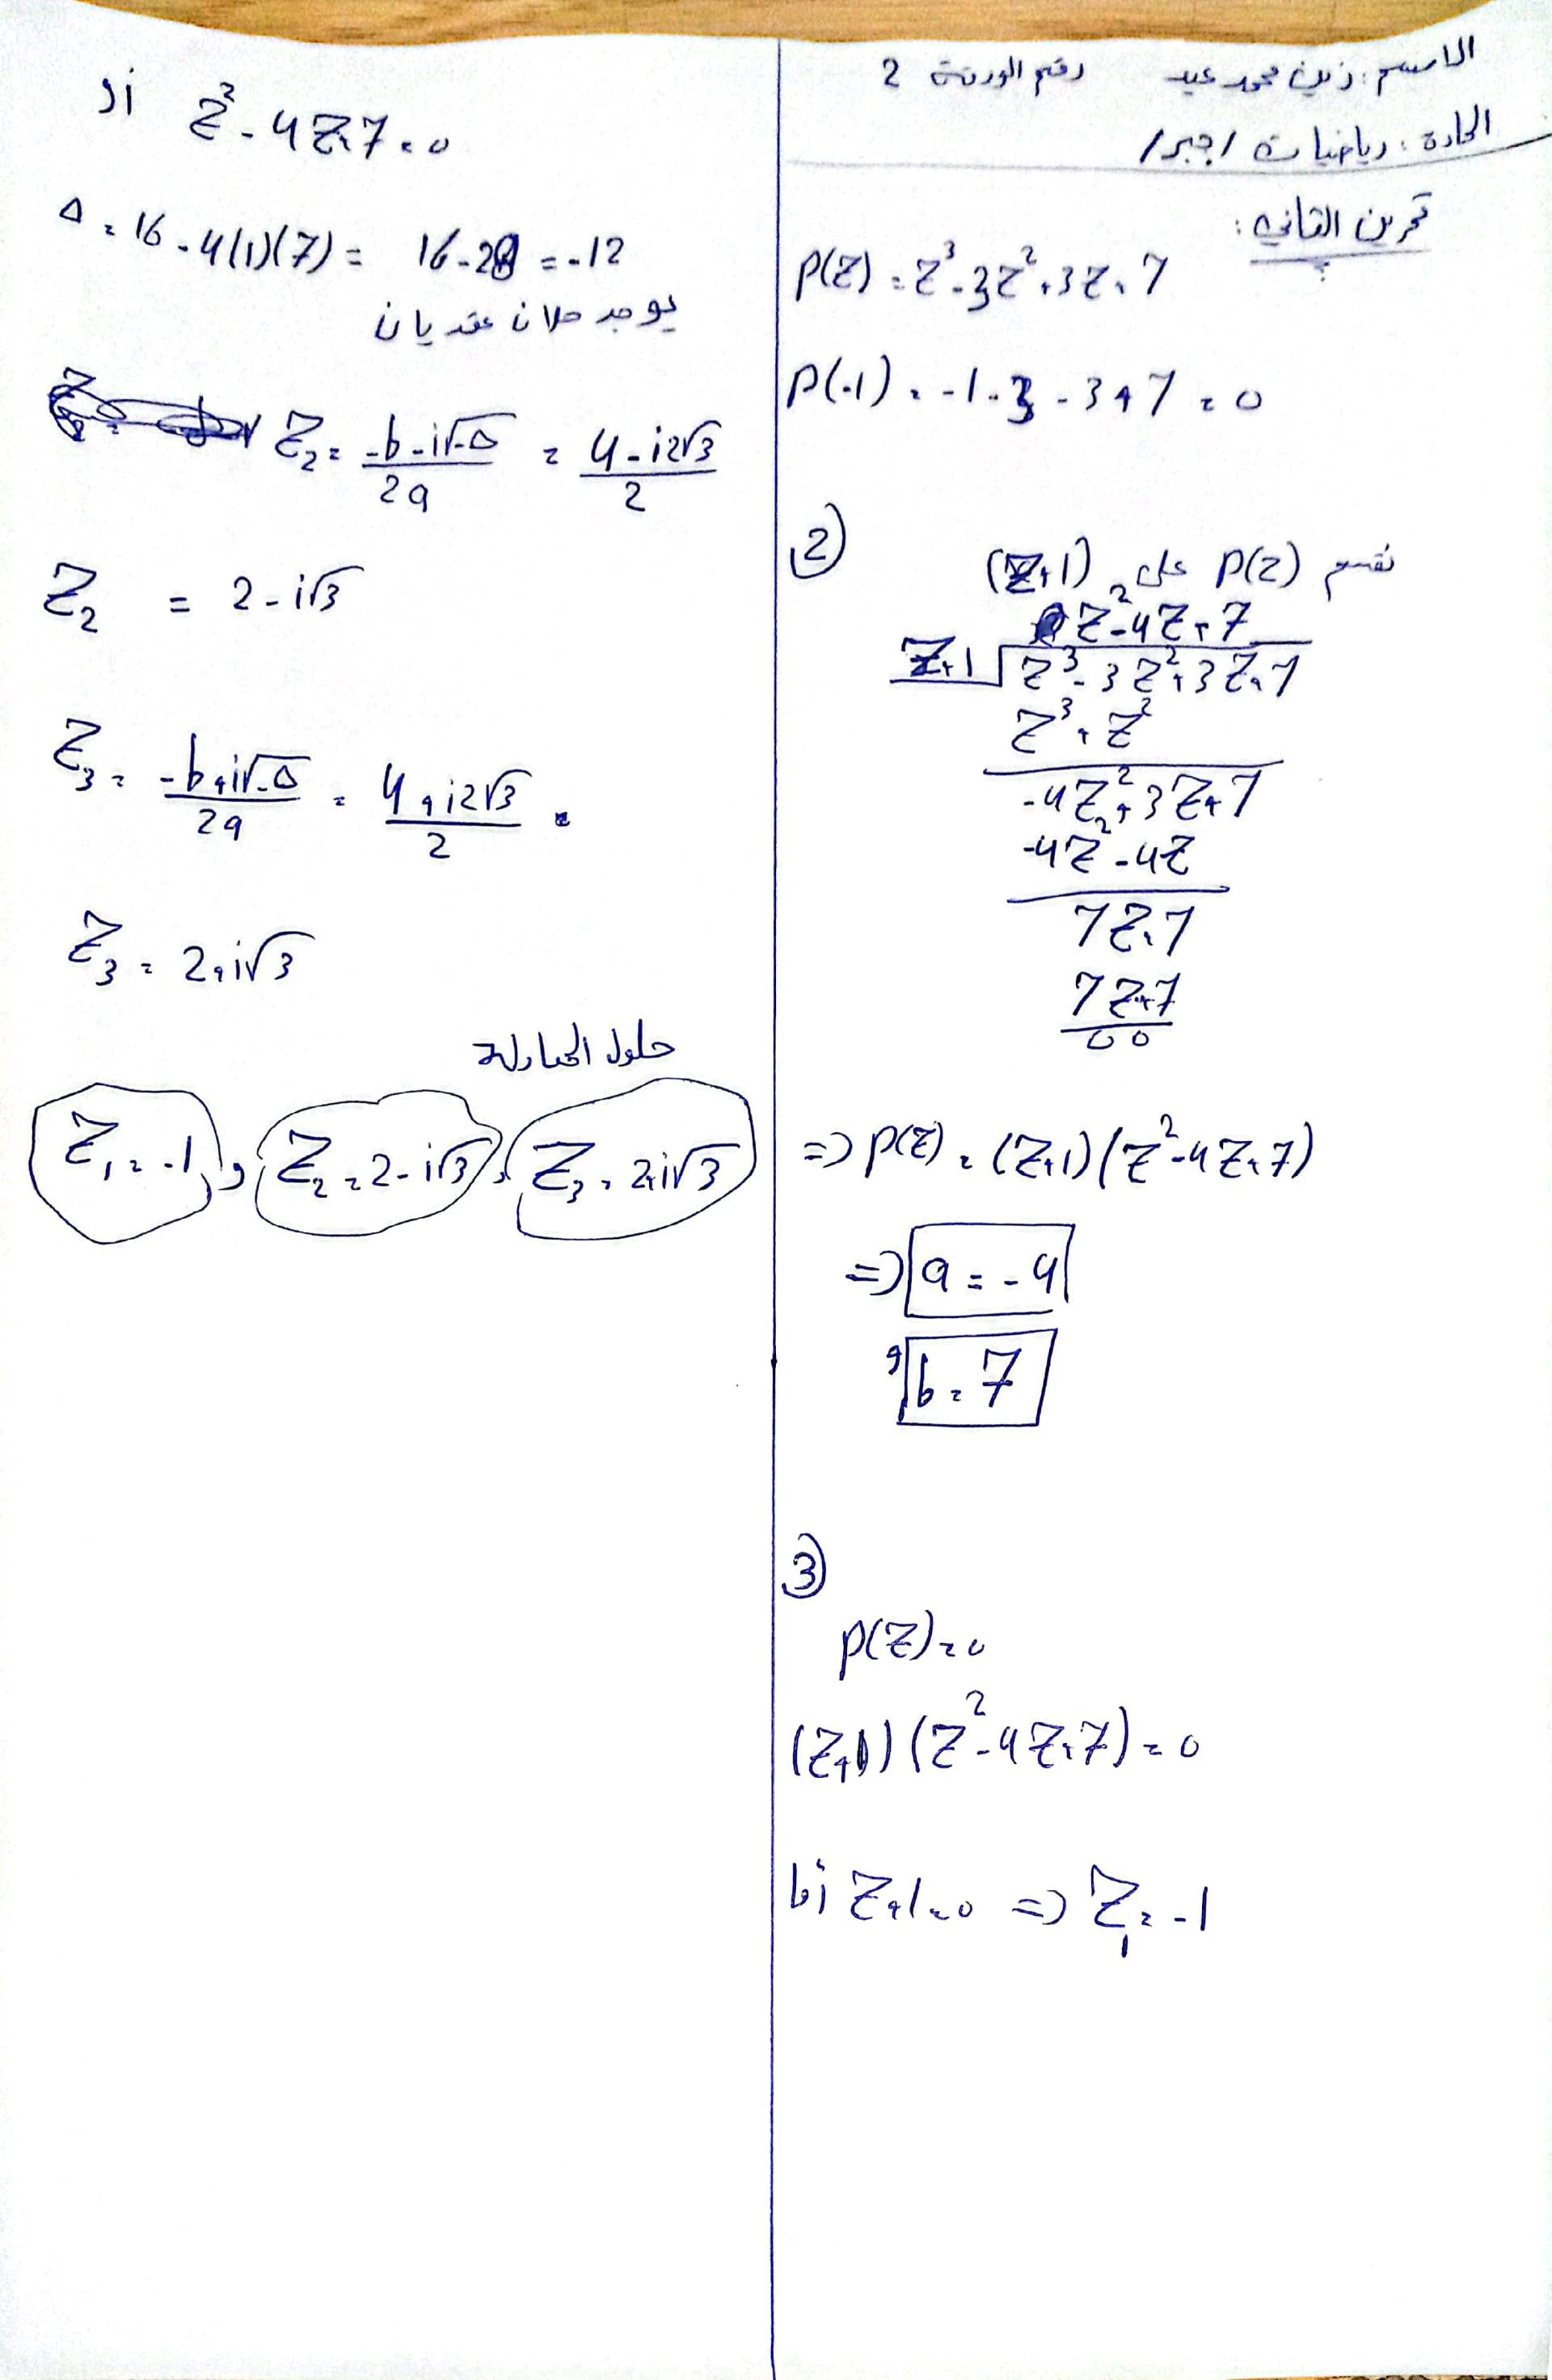 الاسم: زين محمد عيد رقم الورقة 2
المادة: رياضيات /جبر/
تمرين الثاني:
P(Z) = Z³ - 3Z² + 3Z + 7
P(-1) = -1 - 3 - 3 + 7 = 0
2)
نقسم P(Z) على (Z+1)
Z² - 4Z + 7
Z+1 Z³ - 3Z² + 3Z + 7
Z³ + Z²
-4Z² + 3Z + 7
-4Z² - 4Z
7Z + 7
7Z + 7
0 0
=> P(Z) = (Z+1)(Z² - 4Z + 7)
=> a = -4
و b = 7
3)
P(Z) = 0
(Z+1)(Z² - 4Z + 7) = 0
أما Z + 1 = 0 => Z₁ = -1
أو Z² - 4Z + 7 = 0
Δ = 16 - 4(1)(7) = 16 - 28 = -12
يوجد حلان عقديان
Z₂ = (-b - i√-Δ)/2a = (4 - i2√3)/2
Z₂ = 2 - i√3
Z₃ = (-b + i√-Δ)/2a = (4 + i2√3)/2
Z₃ = 2 + i√3
حلول المعادلة
Z₁ = -1 , Z₂ = 2 - i√3 , Z₃ = 2 + i√3